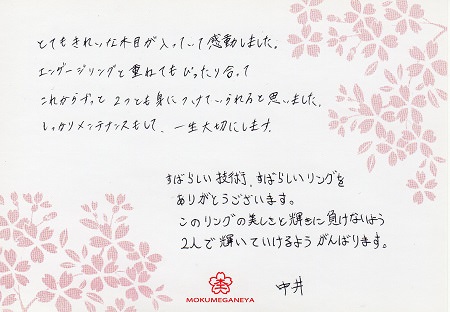 とてもきれいな木目が入っていて感動しました。
エンゲージリングと重ねてもぴったり合って
これからずっと2つとも身につけていられると思いました。
しっかりメンテナンスもして、一生大切にします。
すばらしい技術、すばらしいリングを
ありがとうございます。
このリングの美しさと輝きに負けないよう
2人で輝いていけるようがんばります。
中井
MOKUMEGANEYA